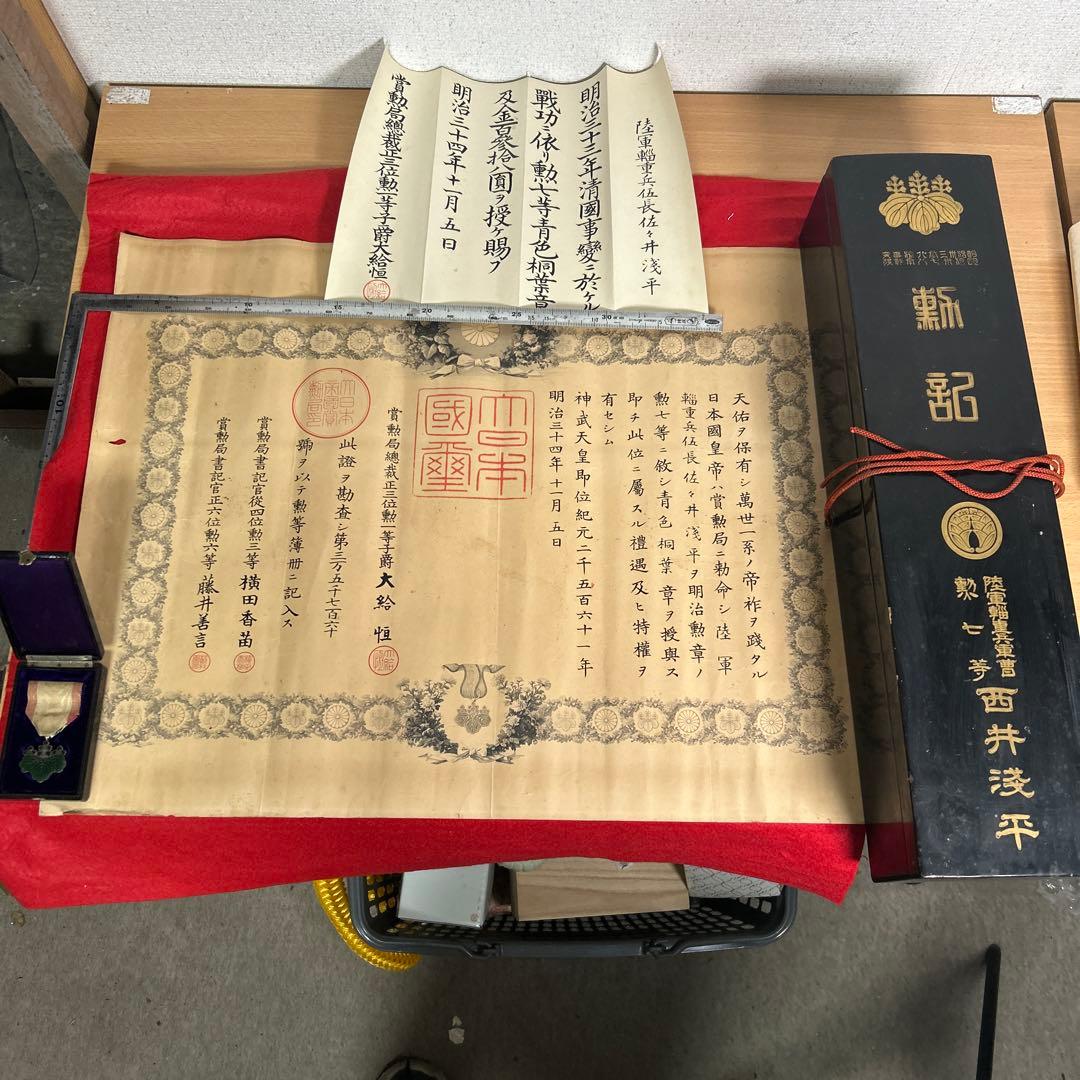 陸軍輜重兵伍長佐々井淺平
明治三十三年清國事變ニ於ケル
戰功ニ依リ勲七等青色桐葉章
及金百參拾八圓ヲ授ケ賜フ
明治三十四年十一月五日
賞勲局總裁正三位勲一等子爵大給恒
天佑ヲ保有シ萬世一系ノ帝祚ヲ踐タル
日本國皇帝ハ賞勲局ニ勅命シ陸軍
輜重兵伍長佐々井淺平ヲ明治勲章ノ
勲七等ニ敘シ青色桐葉章ヲ授與ス
即チ此位ニ屬スル禮遇及ヒ特權ヲ
有セシム
神武天皇即位紀元二千五百六十一年
明治三十四年十一月五日
大日本國璽
賞勲局總裁正三位勲一等子爵大給恒
此證ヲ勘査シ第三万五千七百六十
號ヲ以テ勲等簿册ニ記入ス
賞勲局書記官從四位勲三等橫田香苗
賞勲局書記官正六位勲六等藤井善言
勲記
陸軍輜重兵軍曹
勲七等
西井淺平
15
20
25
30
10